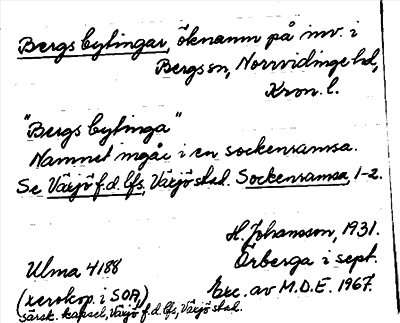 Bergsbytingar, öknamn på inv. i
Bergs sn, Norrvidinge hd,
Kron. l.
"Bergs bytinga"
Namnet ingår i en sockenramsa.
Se Växjö f.d. lfs, Växjö stad. Sockenramsa, 1-2.
H. Johansson, 1931.
Ulma 4188
Örberga i sept.
(xerokop. i SOA,)
Exc. av M.D.E. 1967.
särsk. kapsel, Växjö f.d. lfs, Växjö stad.